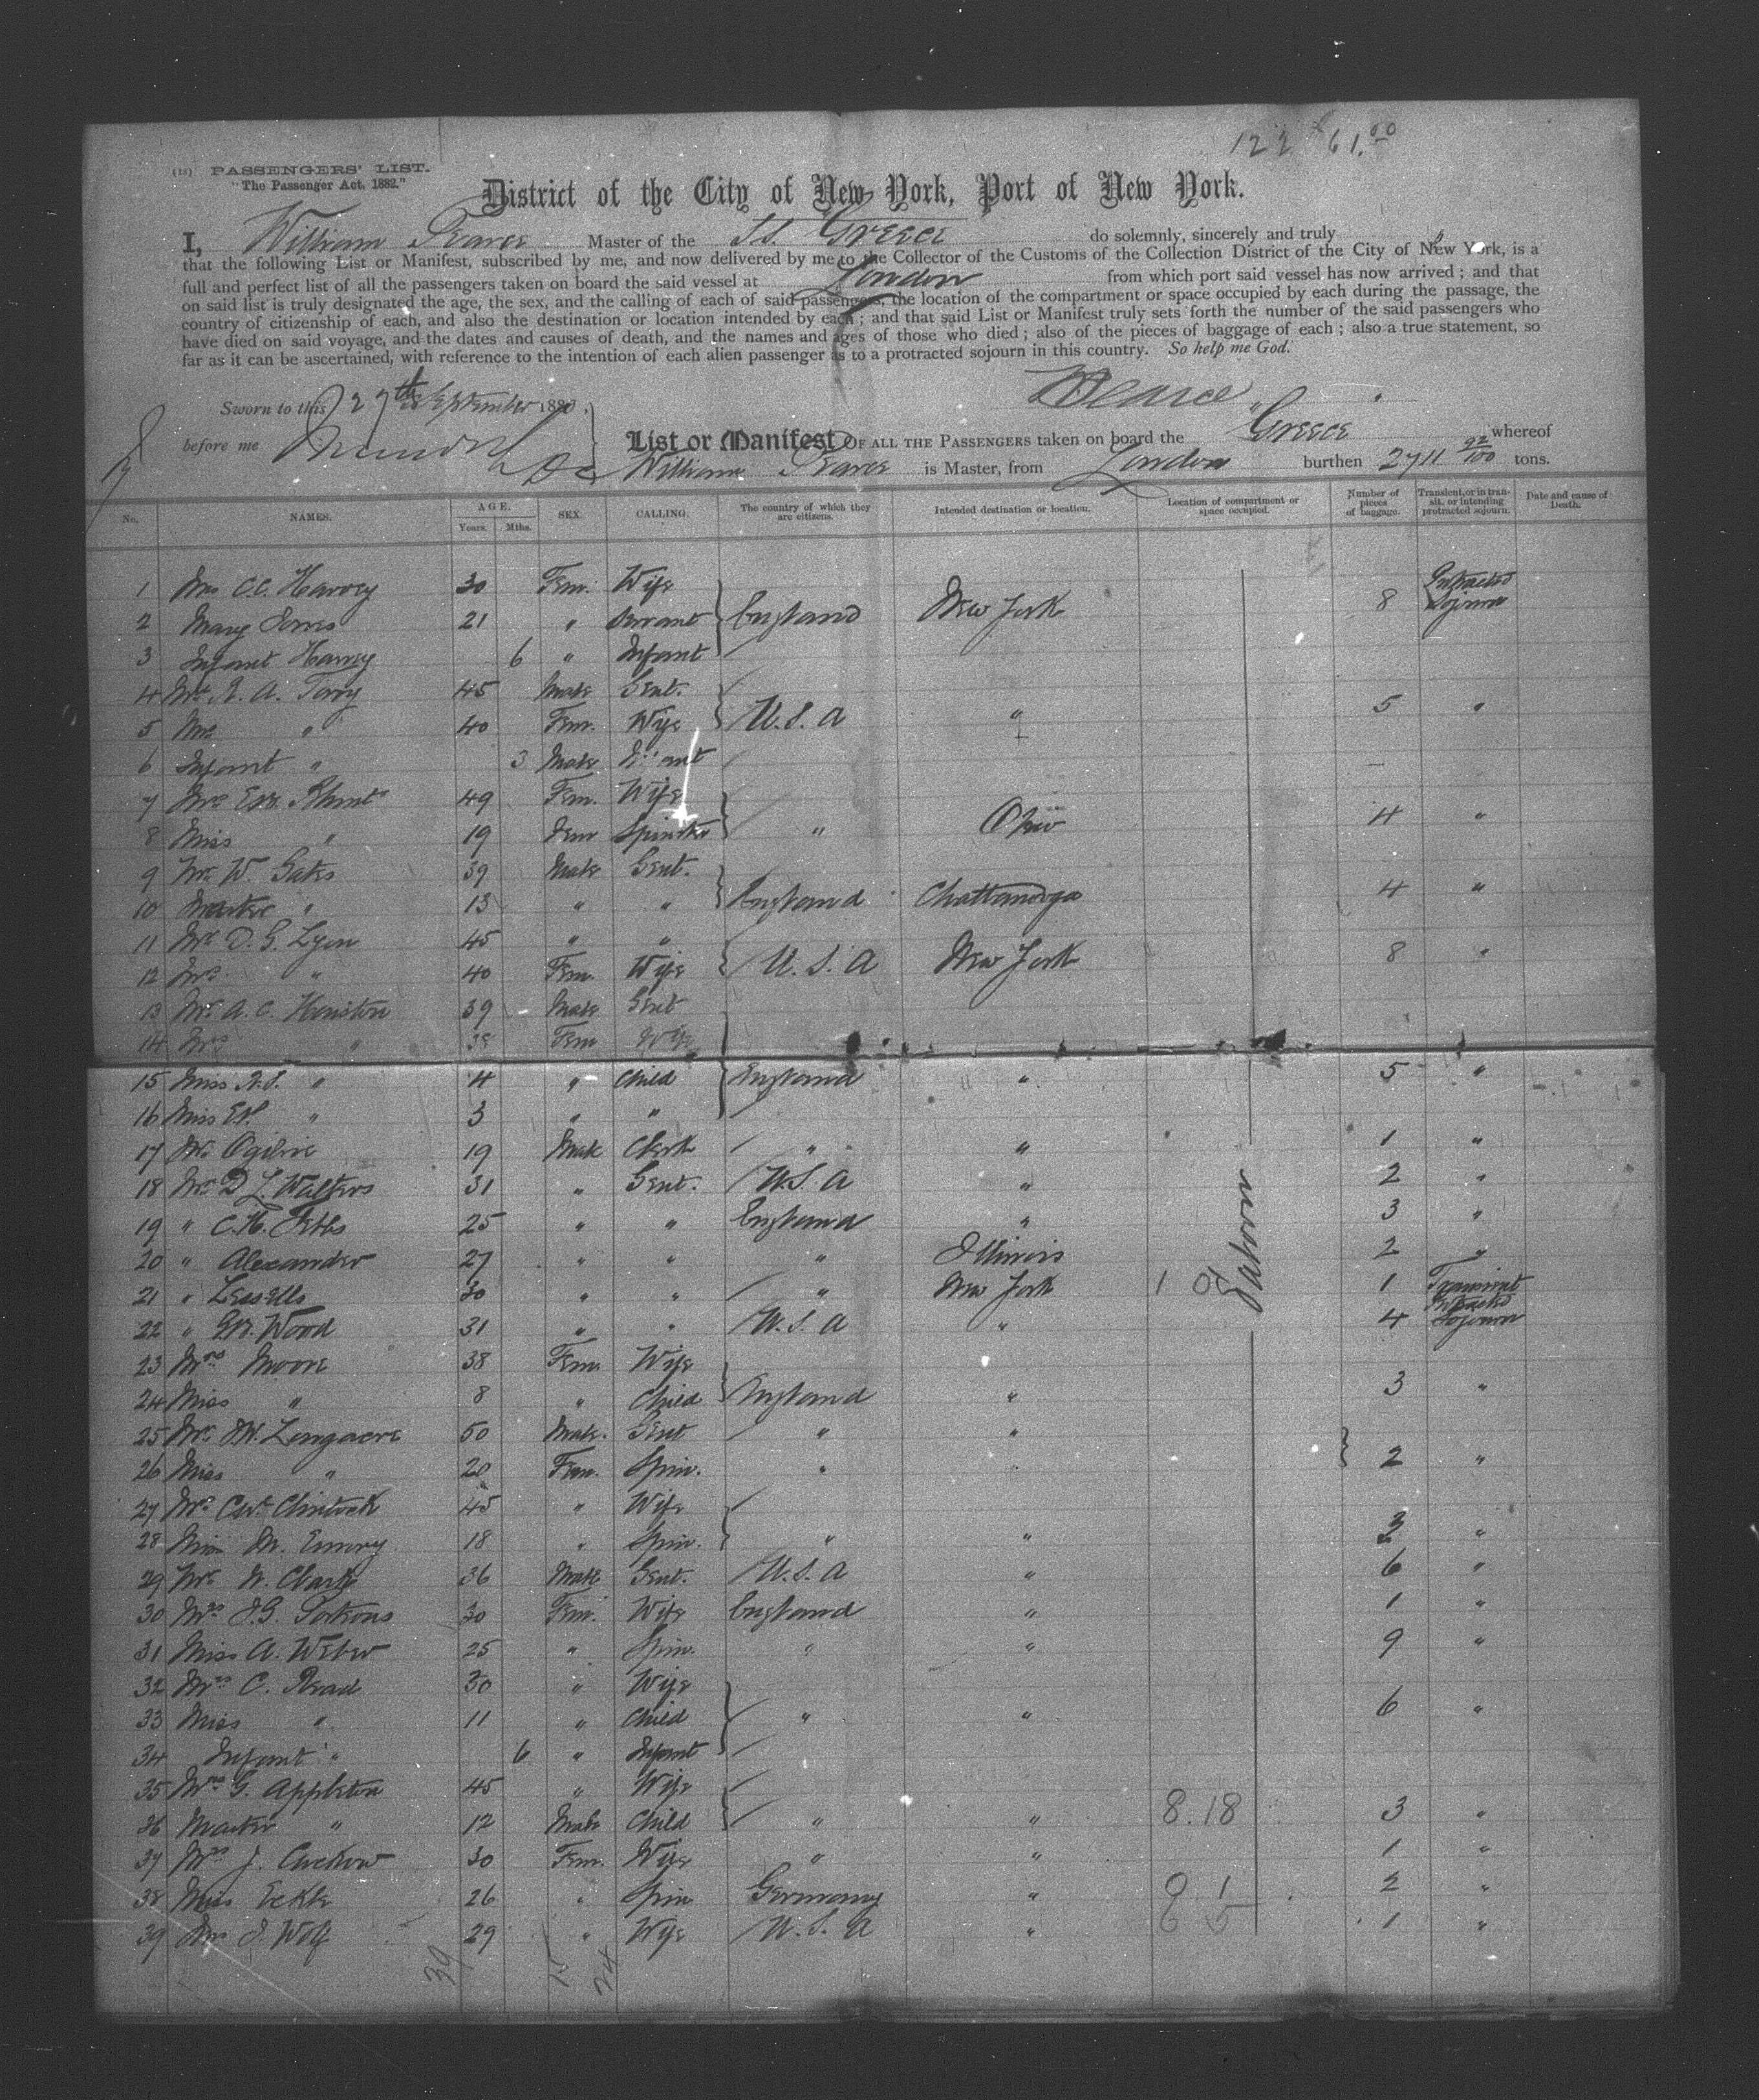 122 61.00
(13) PASSENGERS' LIST.
"The Passenger Act, 1882."
District of the City of New York, Port of New York.
I, William Pearce Master of the SS. Greece do solemnly, sincerely and truly
that the following List or Manifest, subscribed by me, and now delivered by me to the Collector of the Customs of the Collection District of the City of New York, is a
full and perfect list of all the passengers taken on board the said vessel at London from which port said vessel has now arrived; and that
on said list is truly designated the age, the sex, and the calling of each of said passengers, the location of the compartment or space occupied by each during the passage, the
country of citizenship of each, and also the destination or location intended by each; and that said List or Manifest truly sets forth the number of the said passengers who
have died on said voyage, and the dates and causes of death, and the names and ages of those who died; also of the pieces of baggage of each; also a true statement, so
far as it can be ascertained, with reference to the intention of each alien passenger as to a protracted sojourn in this country. So help me God.
WPearce
Sworn to this 27th September 188
before me
List or Manifest OF ALL THE PASSENGERS taken on board the Greece whereof
William Pearce is Master, from London burthen 2711 92/100 tons.
No. NAMES. AGE. Years. Mths. SEX. CALLING. The country of which they are citizens. Intended destination or location. Location of compartment or space occupied. Number of pieces of baggage. Transient, or in transit, or intending protracted sojourn. Date and cause of Death.
1 Mrs C.C. Harvey 30 Fem. Wife
2 Mary 21 " Servant England New York 8 Protracted Sojourn
3 Infant Harvey 6 " Infant
4 Mr. A. Terry 45 Male Gent.
5 Mrs " 40 Fem. Wife U.S.A " 5 "
6 Infant " 3 Male Infant
7 Mrs 49 Fem. Wife
8 Miss " 19 Fem Spinster " Ohio 4 "
9 Mr. W. Gates 39 Male Gent.
10 Master " 13 " " England Chattanooga 4 "
11 Mr. D. G. Lyon 45 " "
12 Mrs " 40 Fem. Wife U.S.A New York 8 "
13 Mr. A. C. Houston 39 Male Gent
14 Mrs " 38 Fem Wife
15 Miss " 4 " Child England " 5 "
16 Miss " 3 " "
17 Mr. Ogilvie 19 Male Clerk " " 1 "
18 Mr. D. L. Walters 31 " Gent. U.S.A " 2 "
19 " C.H. 25 " " England " 3 "
20 " Alexander 27 " " " Illinois 2 "
21 " Lessells 30 " " " New York 1 Transient
22 " Wood 31 " " U.S.A " 4 Protracted Sojourn
23 Mrs Moore 38 Fem. Wife
24 Miss " 8 " Child England " 3 "
25 Mr. J.W. Longacre 50 Male. Gent " "
26 Miss " 20 Fem. Spin. " " 2 "
27 Mrs Clintock 45 " Wife
28 Miss M. Emery 18 " Spin. " " "
29 Mr. W. Clark 36 Male Gent. U.S.A " 6 "
30 Mrs J.G. 30 Fem. Wife England " 1 "
31 Miss A. Weber 25 " Spin. " " 9 "
32 Mrs C. Read 30 " Wife
33 Miss " 11 " Child " " 6 "
34 Infant " 6 " Infant
35 Mrs G. Appleton 45 " Wife
36 Master " 12 Male Child " " 8.18 3 "
37 Mrs J. 30 Fem. Wife " " 1 "
38 Miss 26 " Spin Germany " 2 "
39 Mrs J. Wolf 29 " Wife U.S.A " 1 "
Saloon
39 15 24